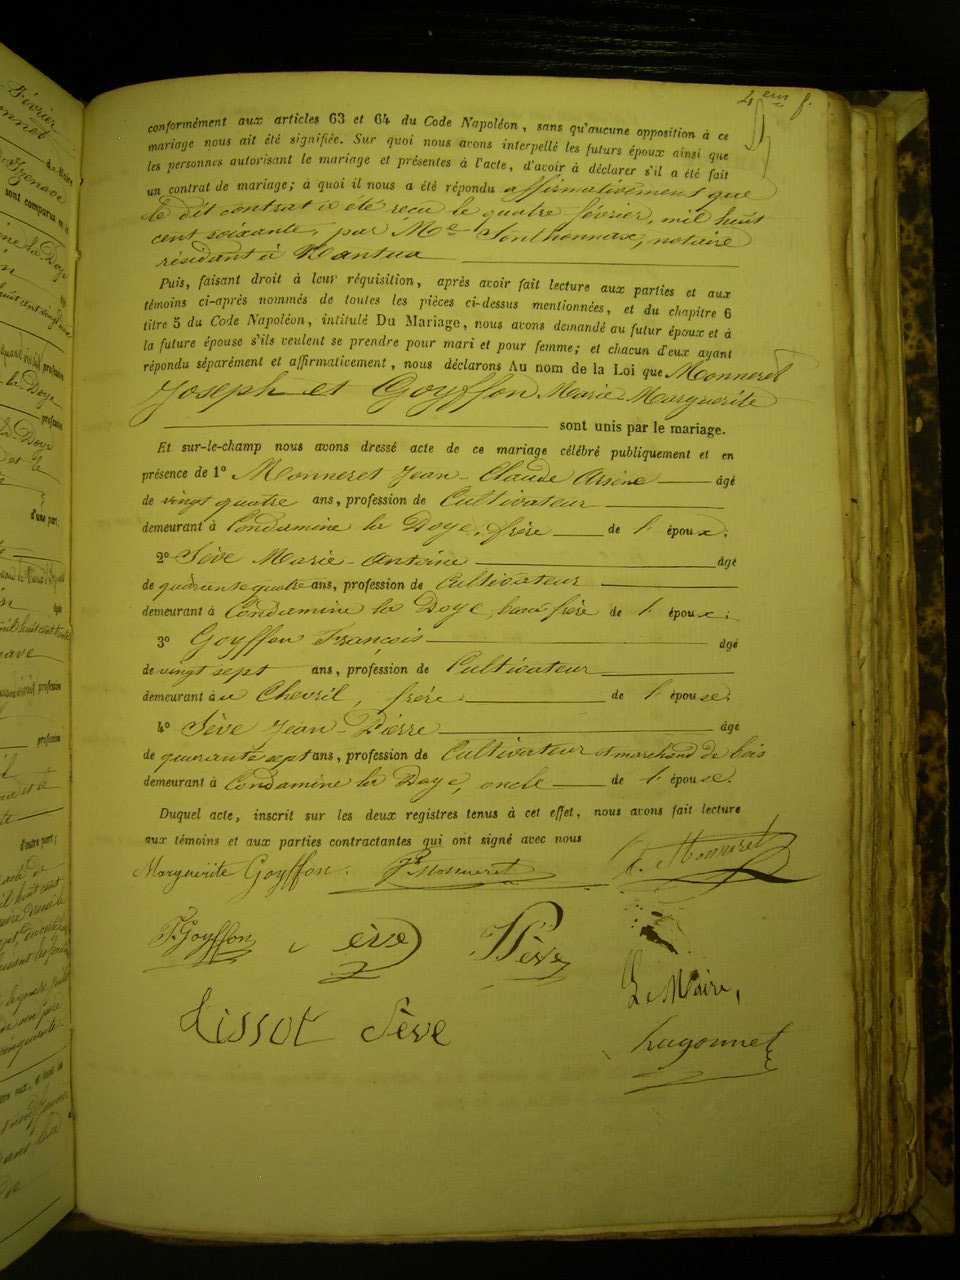 4em f.
conformément aux articles 63 et 64 du Code Napoléon, sans qu'aucune opposition à ce
mariage nous ait été signifiée. Sur quoi nous avons interpellé les futurs époux ainsi que
les personnes autorisant le mariage et présentes à l'acte, d'avoir à déclarer s'il a été fait
un contrat de mariage; à quoi il nous a été répondu affirmativement que
le dit contrat a été reçu le quatre février, mil huit
cent soixante, par Me Sonthonnax, notaire
résidant à Nantua
Puis, faisant droit à leur réquisition, après avoir fait lecture aux parties et aux
témoins ci-après nommés de toutes les pièces ci-dessus mentionnées, et du chapitre 6
titre 5 du Code Napoléon, intitulé Du Mariage, nous avons demandé au futur époux et à
la future épouse s'ils veulent se prendre pour mari et pour femme; et chacun d'eux ayant
répondu séparément et affirmativement, nous déclarons Au nom de la Loi que Monneret
Joseph et Goyffon Marie-Marguerite
sont unis par le mariage.
Et sur-le-champ nous avons dressé acte de ce mariage célébré publiquement et en
présence de 1º Monneret Jean Claude Arsène âgé
de vingt quatre ans, profession de Cultivateur
demeurant à Condamine la Doye, frère de l'époux.
2º Sève Marie-Antoine âgé
de quarante quatre ans, profession de Cultivateur
demeurant à Condamine la Doye, beau frère de l'époux.
3º Goyffon François âgé
de vingt sept ans, profession de Cultivateur
demeurant au Chevril, frère de l'épouse.
4º Sève Jean-Pierre âgé
de quarante sept ans, profession de Cultivateur et marchand de bois
demeurant à Condamine la Doye, oncle de l'épouse.
Duquel acte, inscrit sur les deux registres tenus à cet effet, nous avons fait lecture
aux témoins et aux parties contractantes qui ont signé avec nous
Marguerite Goyffon. Monneret Monneret
F. Goyffon Sève Sève
Le Maire,
Tissot Sève
hugonnet